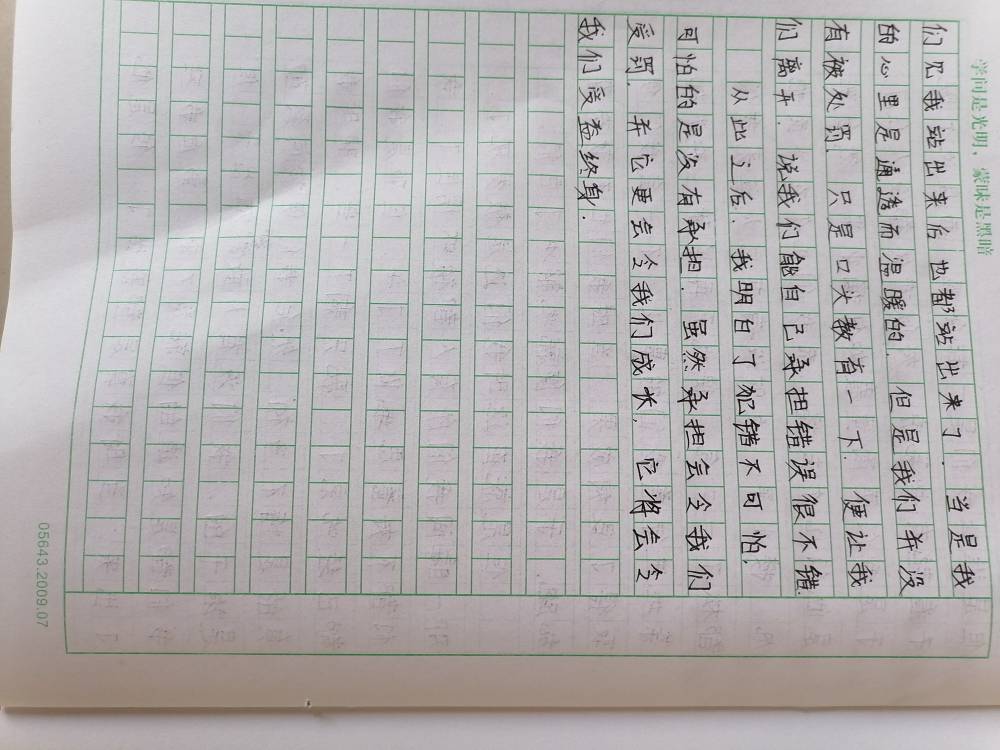 学问是光明，蒙昧是黑暗
们见我站出来后也都站出来了. 当是我
的心里是通透而温暖的. 但是我们并没
有被处罚. 只是口头教育一下. 便让我
们离开. 说我们能自己承担错误很不错
从此之后. 我明白了犯错不可怕.
可怕的是没有承担. 虽然承担会令我们
受罚. 并它更会令我们成长. 它将会令
我们受益终身.
05643.2009.07